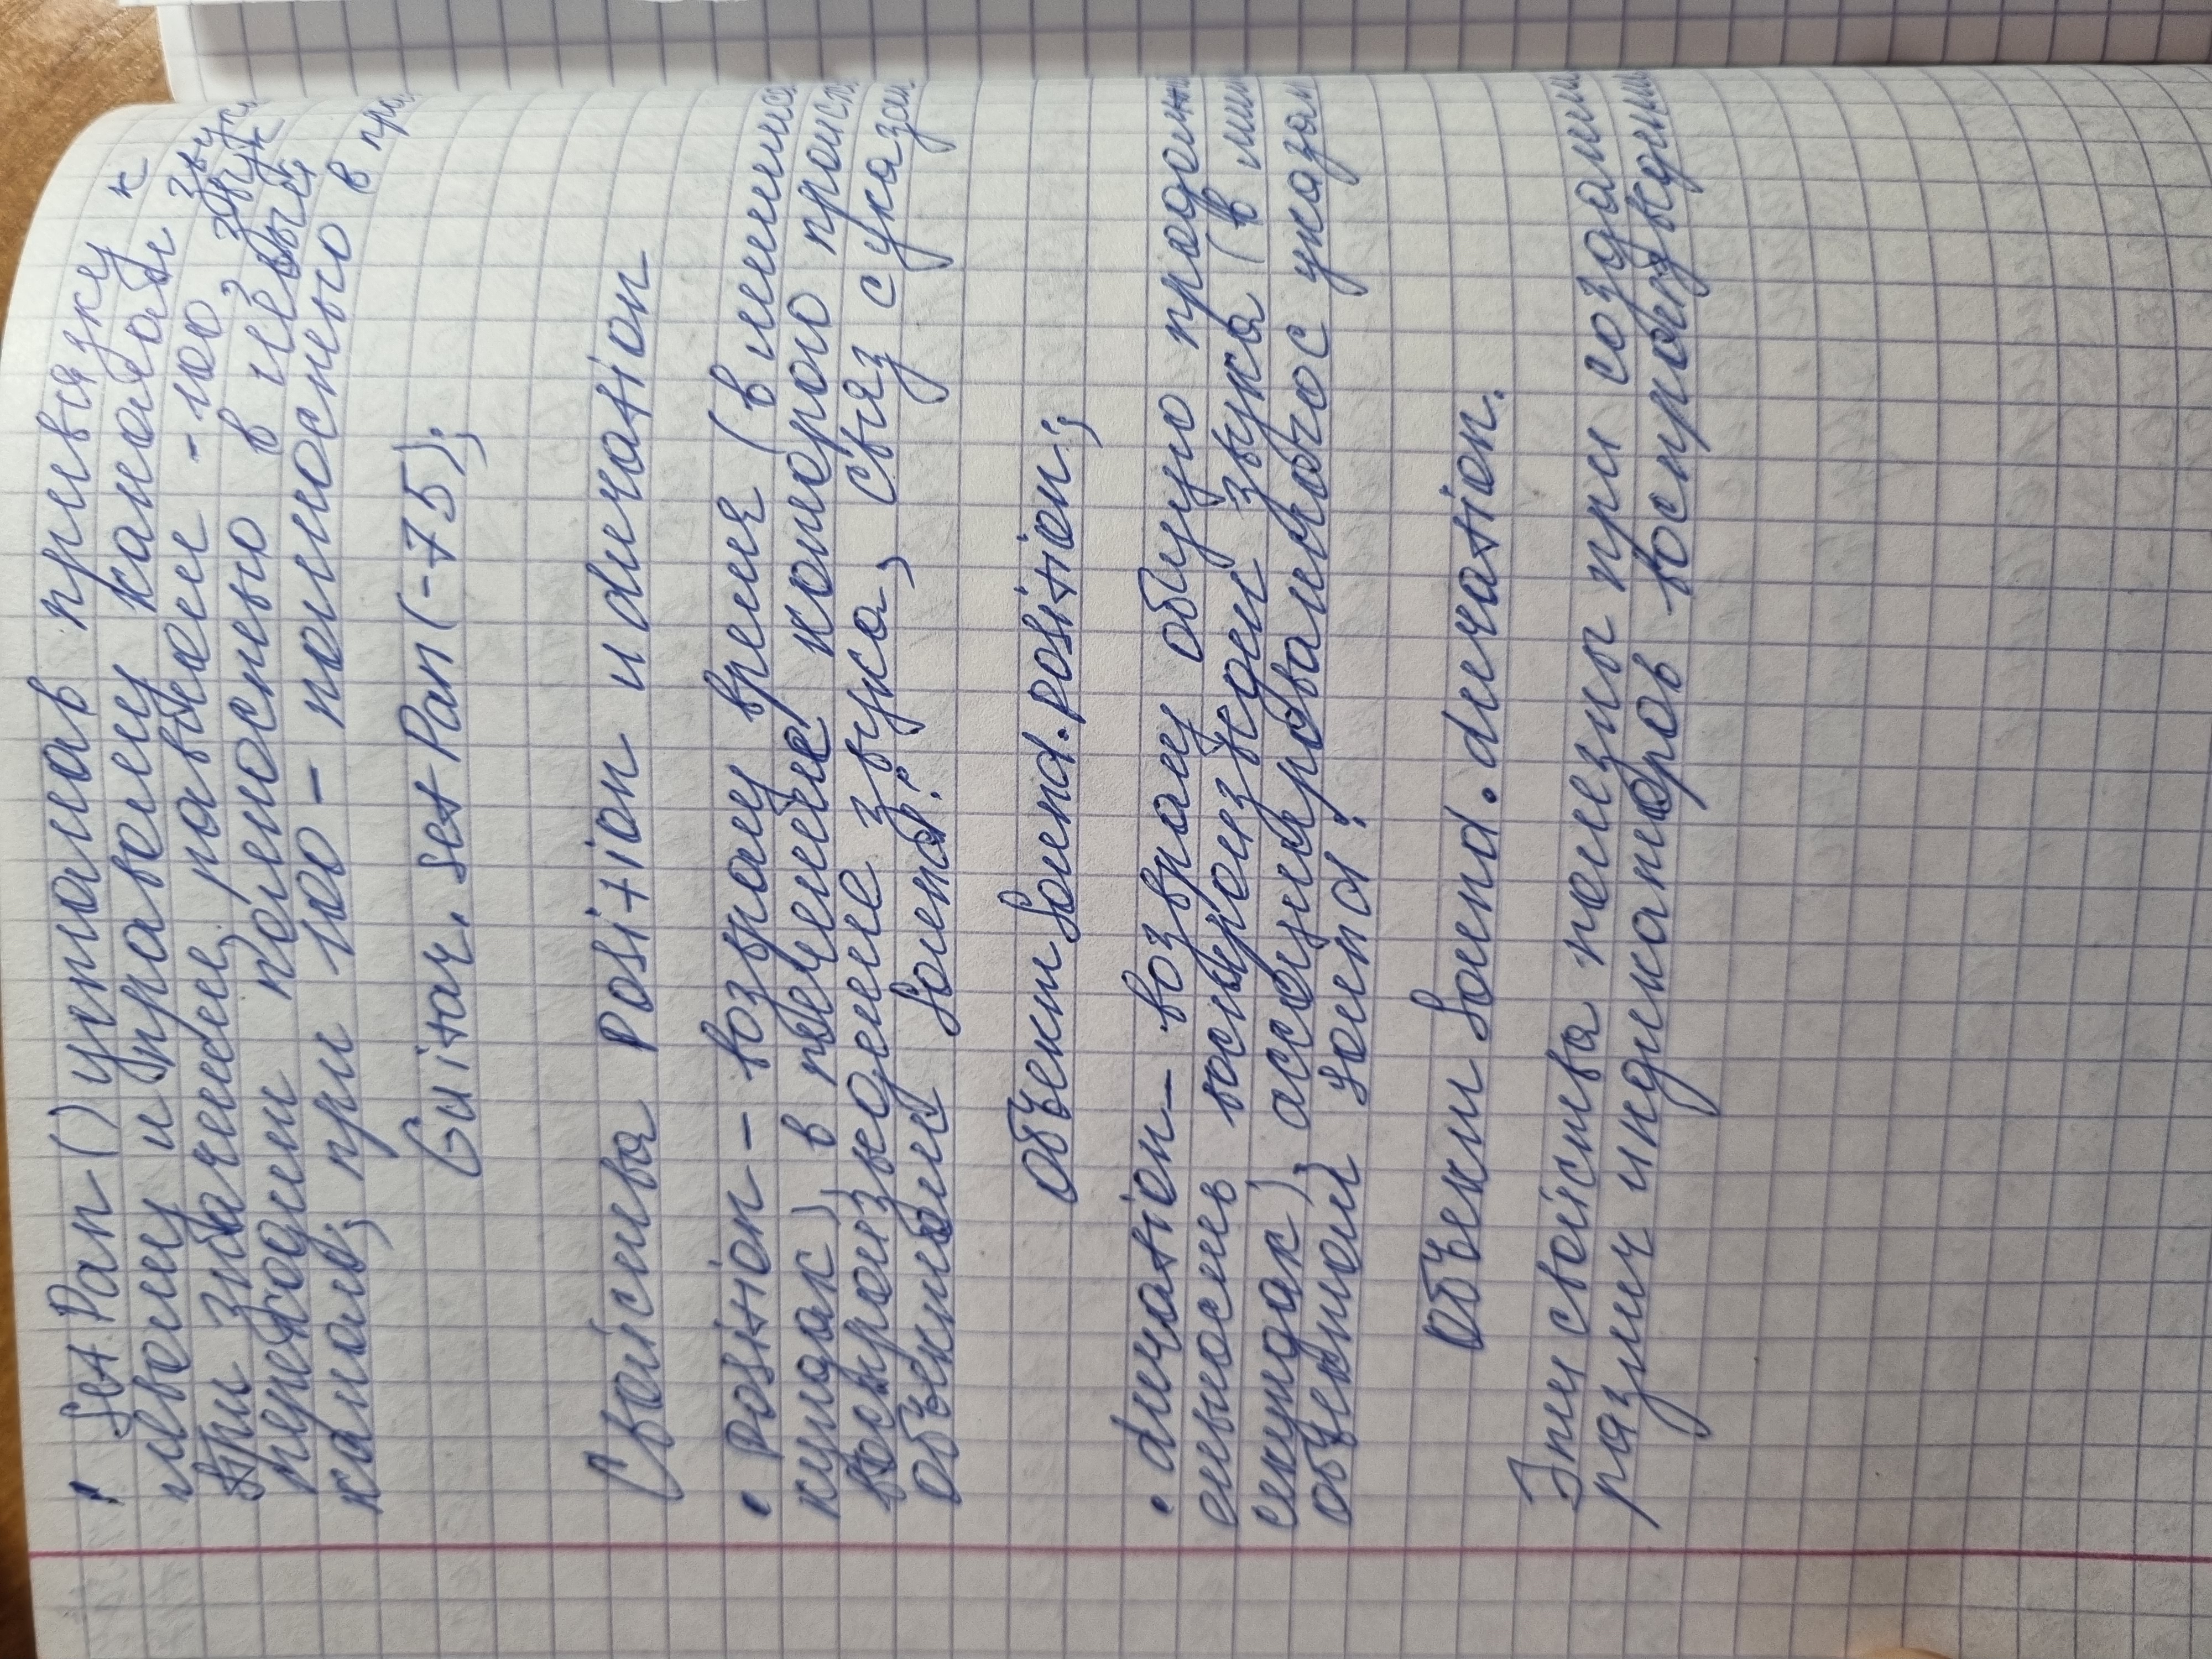 • setPan() устанав привязку к
левому и правому каналам звука
При значении, равном -100, звук
переходит полностью в левый
канал; при 100 - полностью в пра
Guitar. setPan(-75);
Свойства position и duration
• position - возвращ время (в миллисе
кундах), в течение которого происх
воспроизведение звука, связ с указан
объектом Sound:
Объект Sound.position;
• duration - возвращ общую продолжи
тельность воспроизведен звука (в милли
секундах), ассоциированного с указан
объектом sound:
Объект Sound.duration.
Эти свойства полезны при создании
различ индикаторов воспроизведения